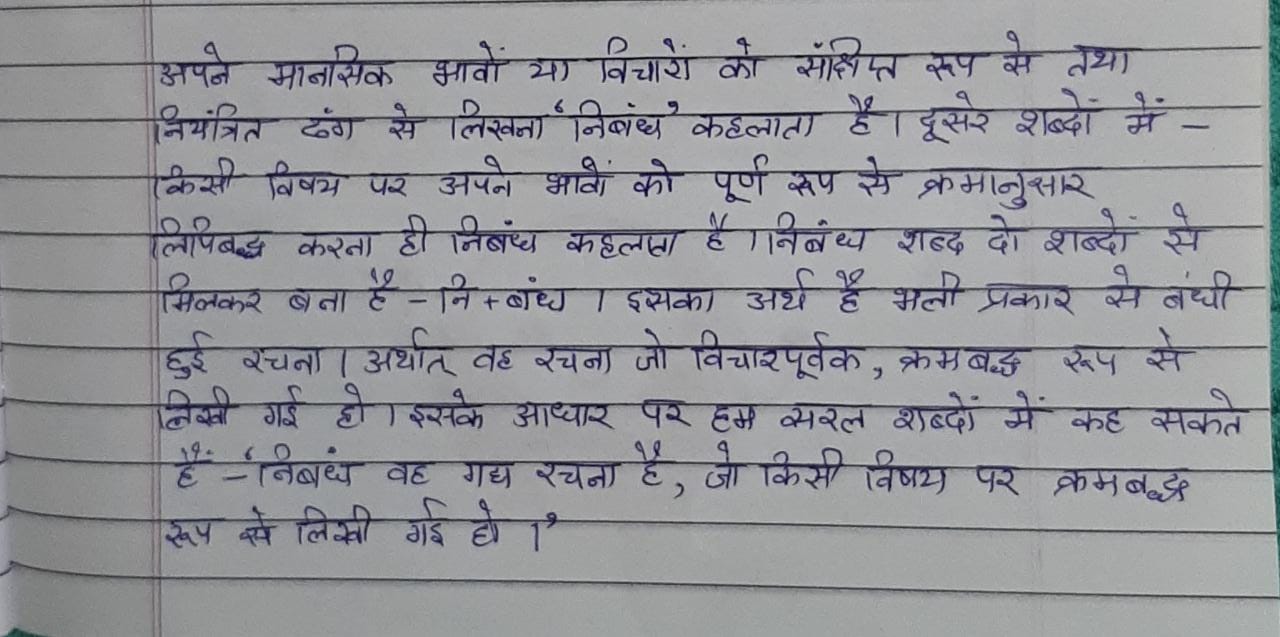 अपने मानसिक भावों या विचारों को संक्षिप्त रूप से तथा
नियंत्रित ढंग से लिखना 'निबंध' कहलाता है। दूसरे शब्दों में –
किसी विषय पर अपने भावों को पूर्ण रूप से क्रमानुसार
लिपिबद्ध करना ही निबंध कहलाता है। निबंध शब्द दो शब्दों से
मिलकर बना है – नि + बंध। इसका अर्थ है भली प्रकार से बंधी
हुई रचना। अर्थात् वह रचना जो विचारपूर्वक, क्रमबद्ध रूप से
लिखी गई हो। इसके आधार पर हम सरल शब्दों में कह सकते
हैं – 'निबंध वह गद्य रचना है, जो किसी विषय पर क्रमबद्ध
रूप से लिखी गई हो।'